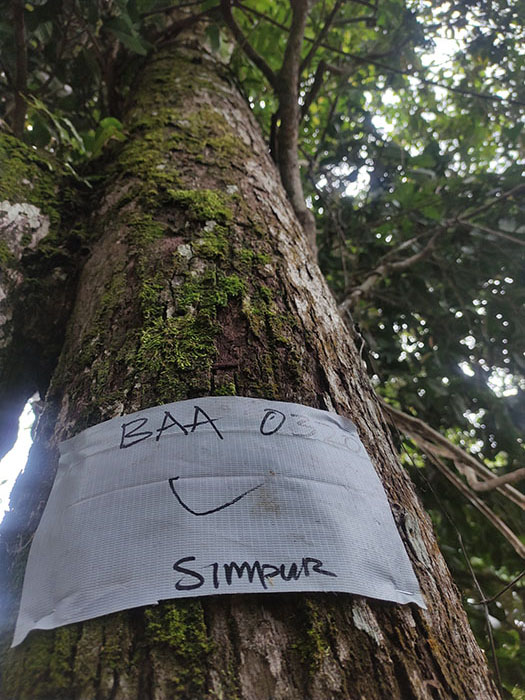 BAA 03
SIMPUR